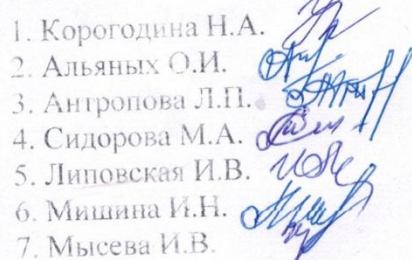 1. Корогодина Н.А.
2. Альяных О.И.
3. Антропова Л.П.
4. Сидорова М.А.
5. Липовская И.В.
6. Мишина И.Н.
7. Мысева И.В.